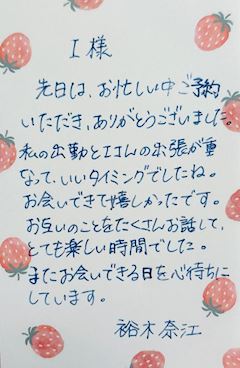 I 様
先日は、お忙しい中ご予約
いただき、ありがとうございました。
私の出勤とIさんの出張が重
なって、いいタイミングでしたね。
お会いできて嬉しかったです。
お互いのことをたくさんお話して、
とても楽しい時間でした。
またお会いできる日を心待ちに
しています。
裕木奈江